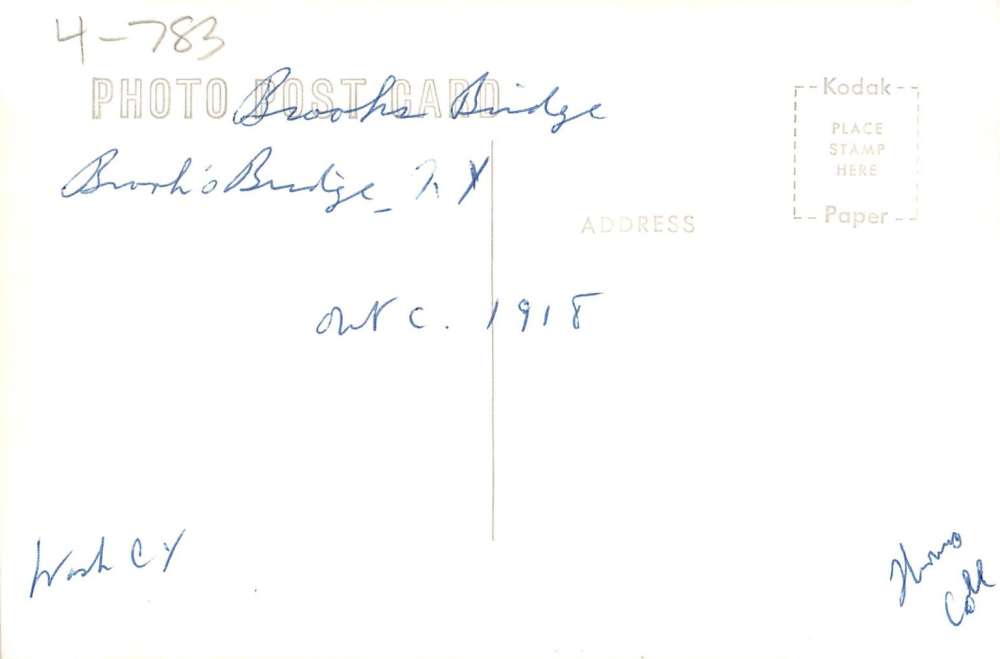 4-783
PHOTO POST CARD
Brooks Bridge
Brook's Bridge - N Y
Kodak
PLACE
STAMP
HERE
Paper
ADDRESS
out c. 1918
Wash CY
Coll